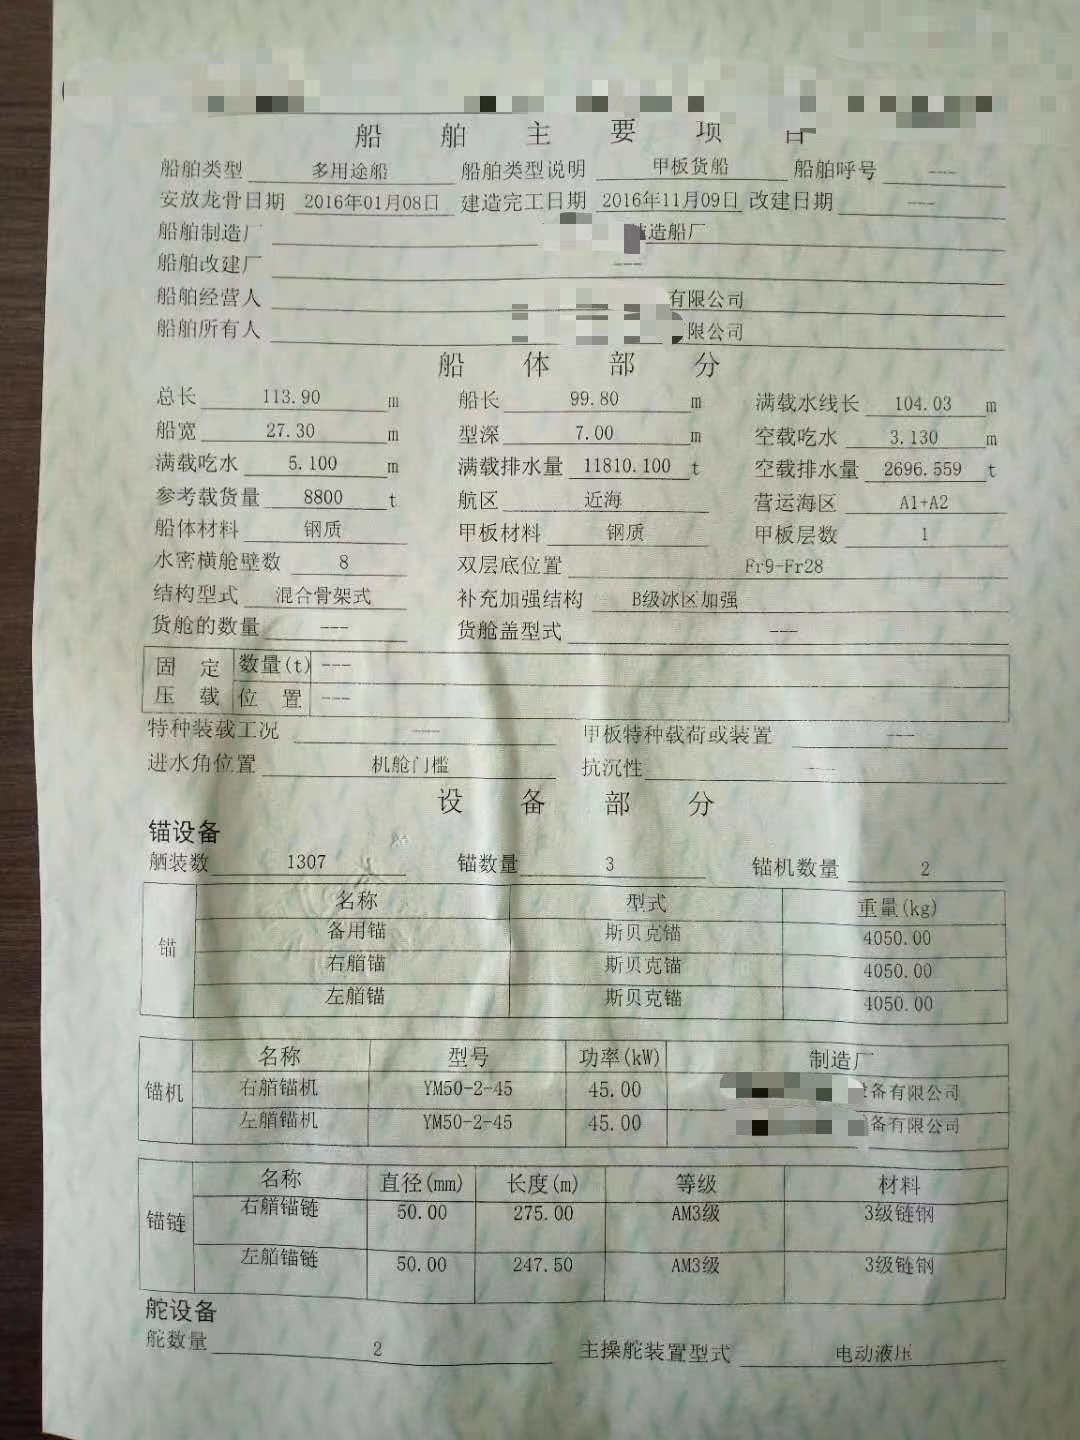 船舶主要项目
船舶类型 多用途船 船舶类型说明 甲板货船 船舶呼号 ---
安放龙骨日期 2016年01月08日 建造完工日期 2016年11月09日 改建日期 ---
船舶制造厂 造船厂
船舶改建厂 ---
船舶经营人 有限公司
船舶所有人 限公司
船体部分
总长 113.90 m 船长 99.80 m 满载水线长 104.03 m
船宽 27.30 m 型深 7.00 m 空载吃水 3.130 m
满载吃水 5.100 m 满载排水量 11810.100 t 空载排水量 2696.559 t
参考载货量 8800 t 航区 近海 营运海区 A1+A2
船体材料 钢质 甲板材料 钢质 甲板层数 1
水密横舱壁数 8 双层底位置 Fr9-Fr28
结构型式 混合骨架式 补充加强结构 B级冰区加强
货舱的数量 --- 货舱盖型式 ---
固定压载 数量(t) ---
位置 ---
特种装载工况 --- 甲板特种载荷或装置 ---
进水角位置 机舱门槛 抗沉性 ---
设备部分
锚设备
舾装数 1307 锚数量 3 锚机数量 2
锚 名称 型式 重量(kg)
备用锚 斯贝克锚 4050.00
右艏锚 斯贝克锚 4050.00
左艏锚 斯贝克锚 4050.00
锚机 名称 型号 功率(kW) 制造厂
右艏锚机 YM50-2-45 45.00 设备有限公司
左艏锚机 YM50-2-45 45.00 设备有限公司
锚链 名称 直径(mm) 长度(m) 等级 材料
右艏锚链 50.00 275.00 AM3级 3级链钢
左艏锚链 50.00 247.50 AM3级 3级链钢
舵设备
舵数量 2 主操舵装置型式 电动液压